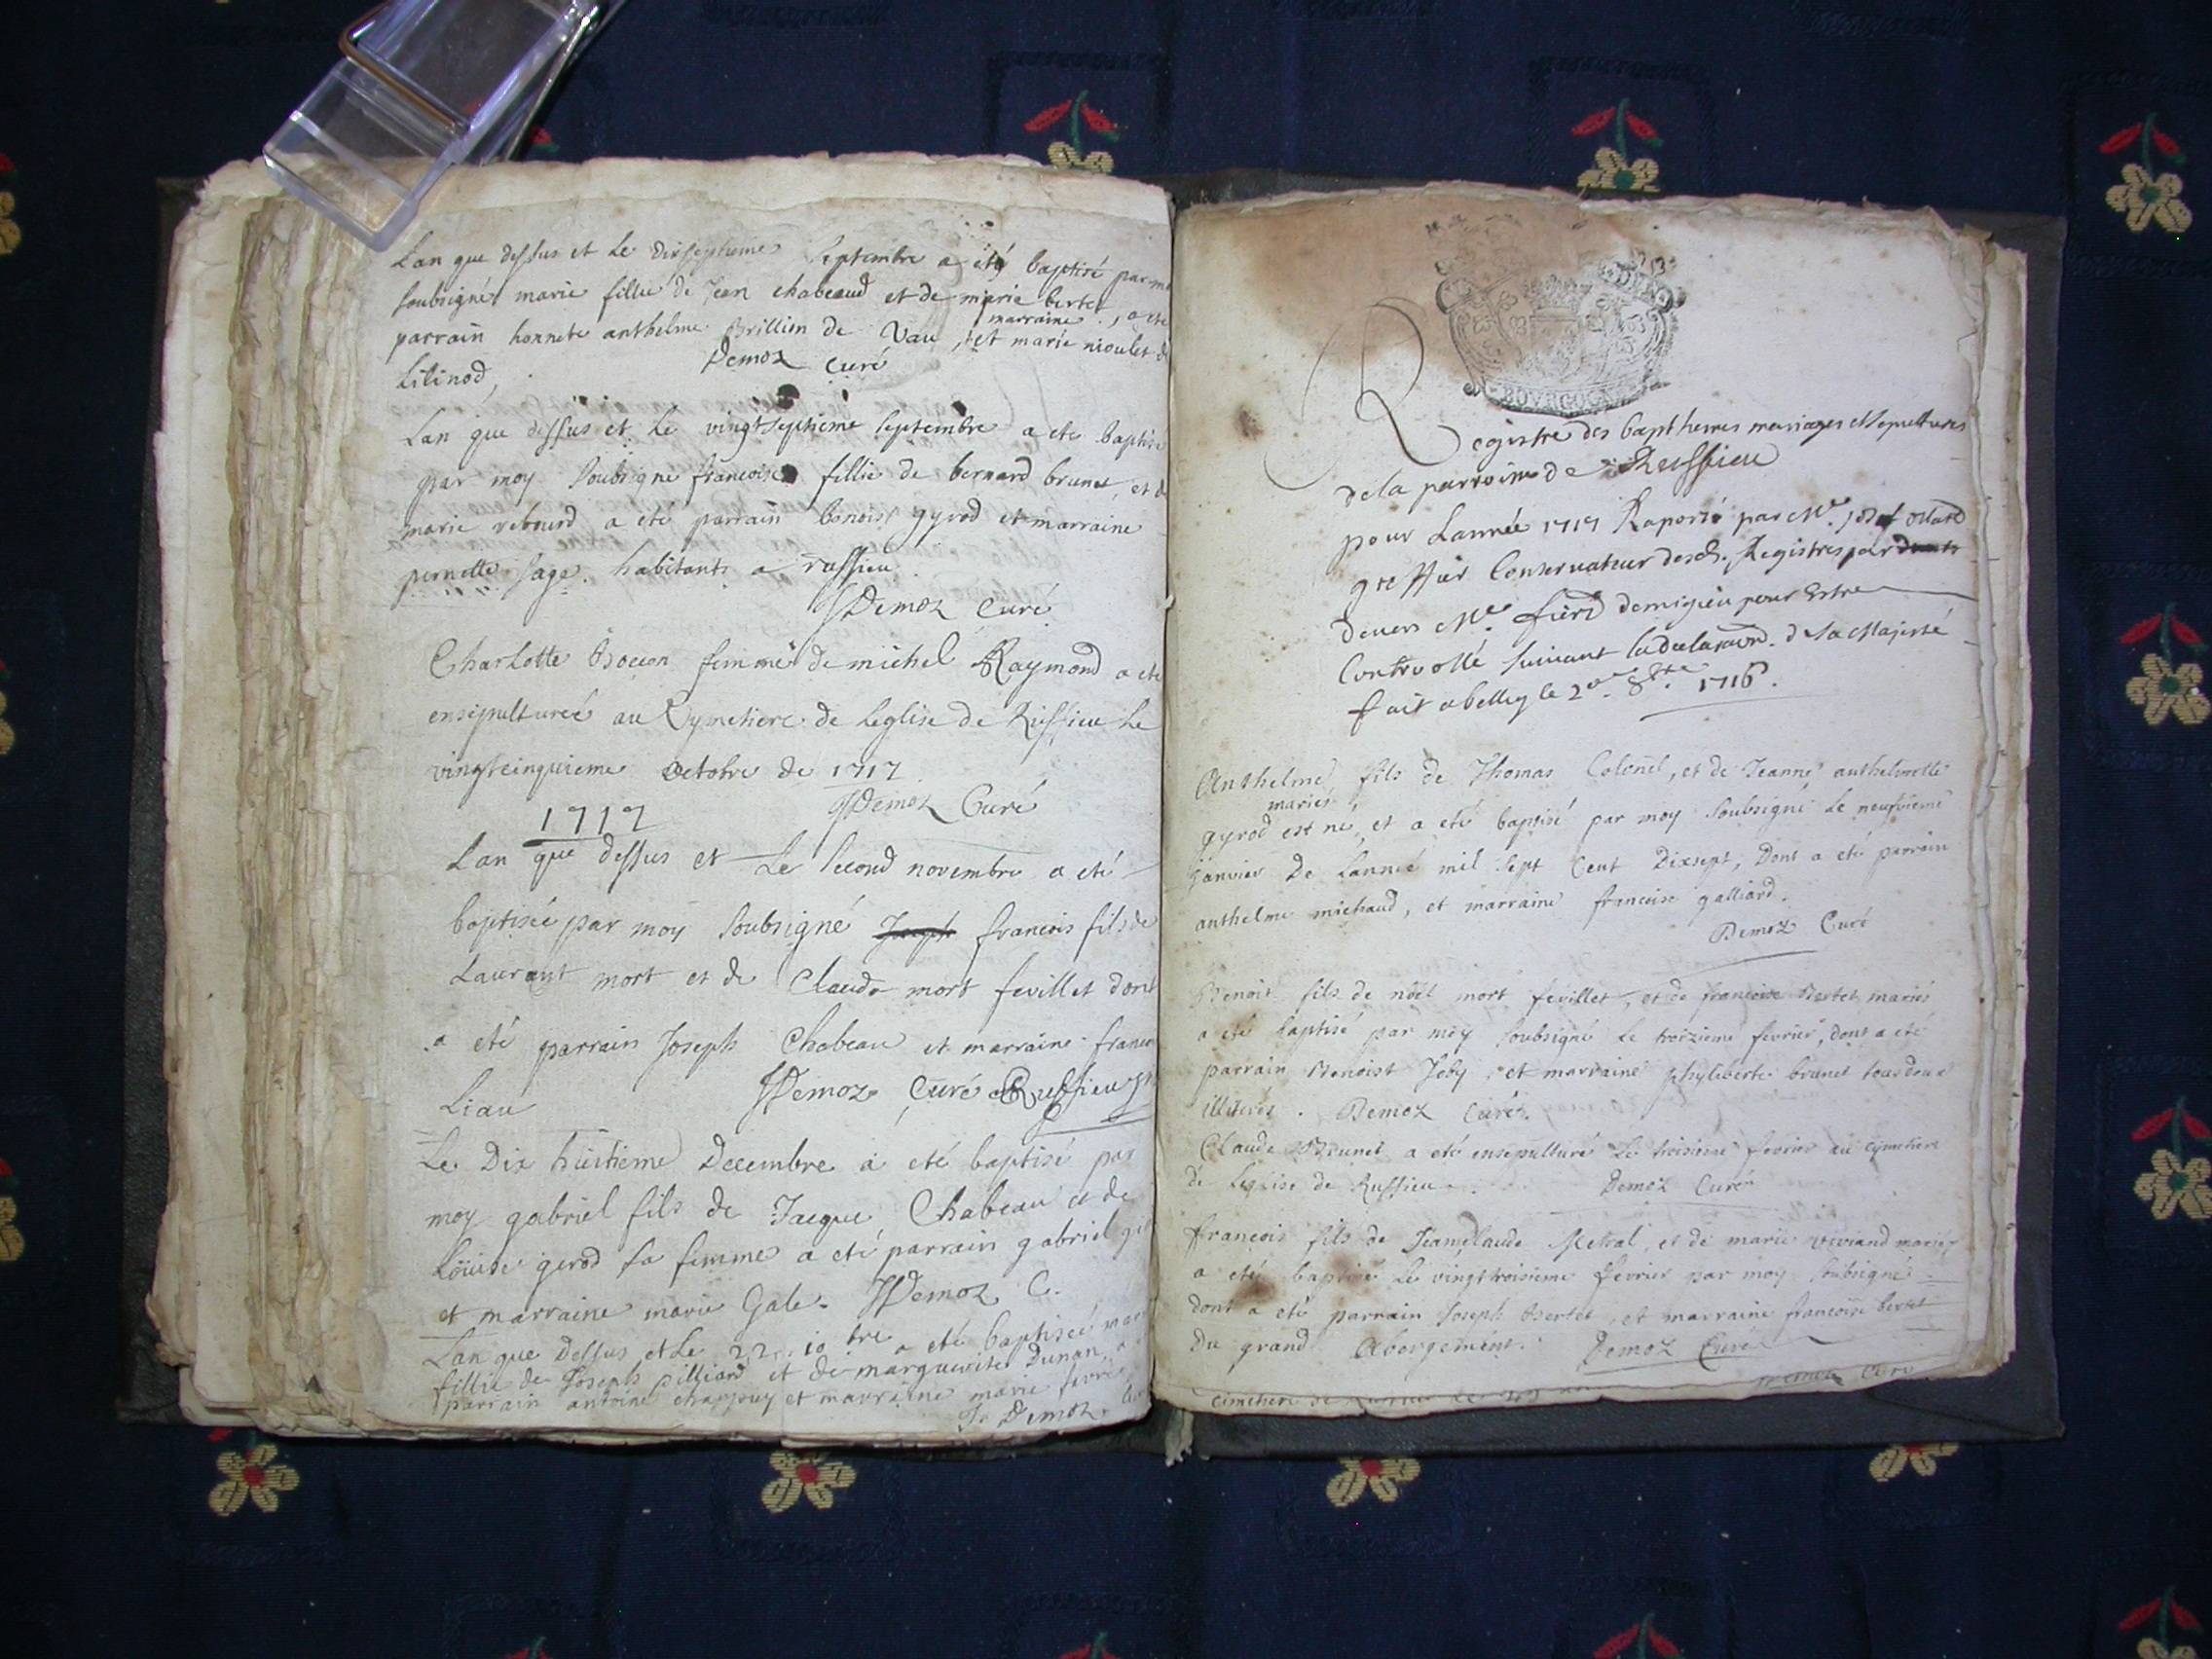 Lan que dessus et Le dixseptieme Septembre a eté baptisé par
soubsigné marie fillie de Jean chabeaud et de marie bertet
parrain honnete anthelme Brillion de Vau, et marraine marie nioulet
Lilinod,
Demoz Curé
Lan que dessus et Le vingtseptieme Septembre a ete baptisé
par moy soubsigné francoise fillie de bernard brunet, et
marie rebourd a eté parrain benoist gyrod et marraine
pernette sage. habitants a russieu
Demoz Curé
Charlotte femme de michel Raymond a eté
ensepulturée au Cymetiere de Leglise de Russieu Le
vingtcinquieme Octobre de 1717
Demoz Curé
1717
Lan que dessus et Le second novembre a eté
baptisée par moy soubsigné Joseph francois fils de
Laurant mort et de Claude mort fevillet dont
a eté parrain Joseph Chabeau et marraine
Liau
Demoz Curé Russieu
Le Dix huitieme Decembre a eté baptisé par
moy gabriel fils de Jacque Chabeau et de
Louise gerod sa femme a eté parrain gabriel
et marraine marie Gale. Demoz C.
Lan que dessus et Le 22. 10bre a eté baptiseé
fillie de Joseph pilliard et de marguerite Dunan,
parrain antoine chappuy et marraine marie fevre
Demoz
BOVRGOG
Registre des bapthemes mariages et sepultures
de la parroisse de Reussieu
pour Lannée 1717 Raporté par Me.
greffier Conservateur desd. Registres par
devers Me. demigieu pour Estre
Controollé suivant la declaraon. d sa Majesté
fait a belley le 2e. 8bre 1716.
Anthelme fils de Thomas Colonel, et de Jeanne anthelmette
gyrod mariés est né, et a eté baptisé par moy soubsigné Le neufvieme
janvier De Lannée mil sept Cent Dixsept, Dont a eté parrain
anthelme michaud, et marraine francoise galliard.
Demoz Curé
Benoit fils de noël mort fevillet, et de francoise Bertet mariés
a eté baptisé par moy soubsigné Le troizieme fevrier, dont a eté
parrain Benoist Joby, et marraine phyliberte brunet tous deux
illiterés. Demoz Curé.
Claude Brunet a eté ensepulturé Le troisieme fevrier au cymetiere
de Leglise de Russieu. Demoz Curé
francois fils de Jeanclaude Metral, et de marie viviand mariés
a eté baptisé Le vingttroisieme fevrier par moy soubsigné
dont a eté parrain Joseph Bertet, et marraine francoise bertet
Du grand Abergement. Demoz Curé
cimetiere de Curé